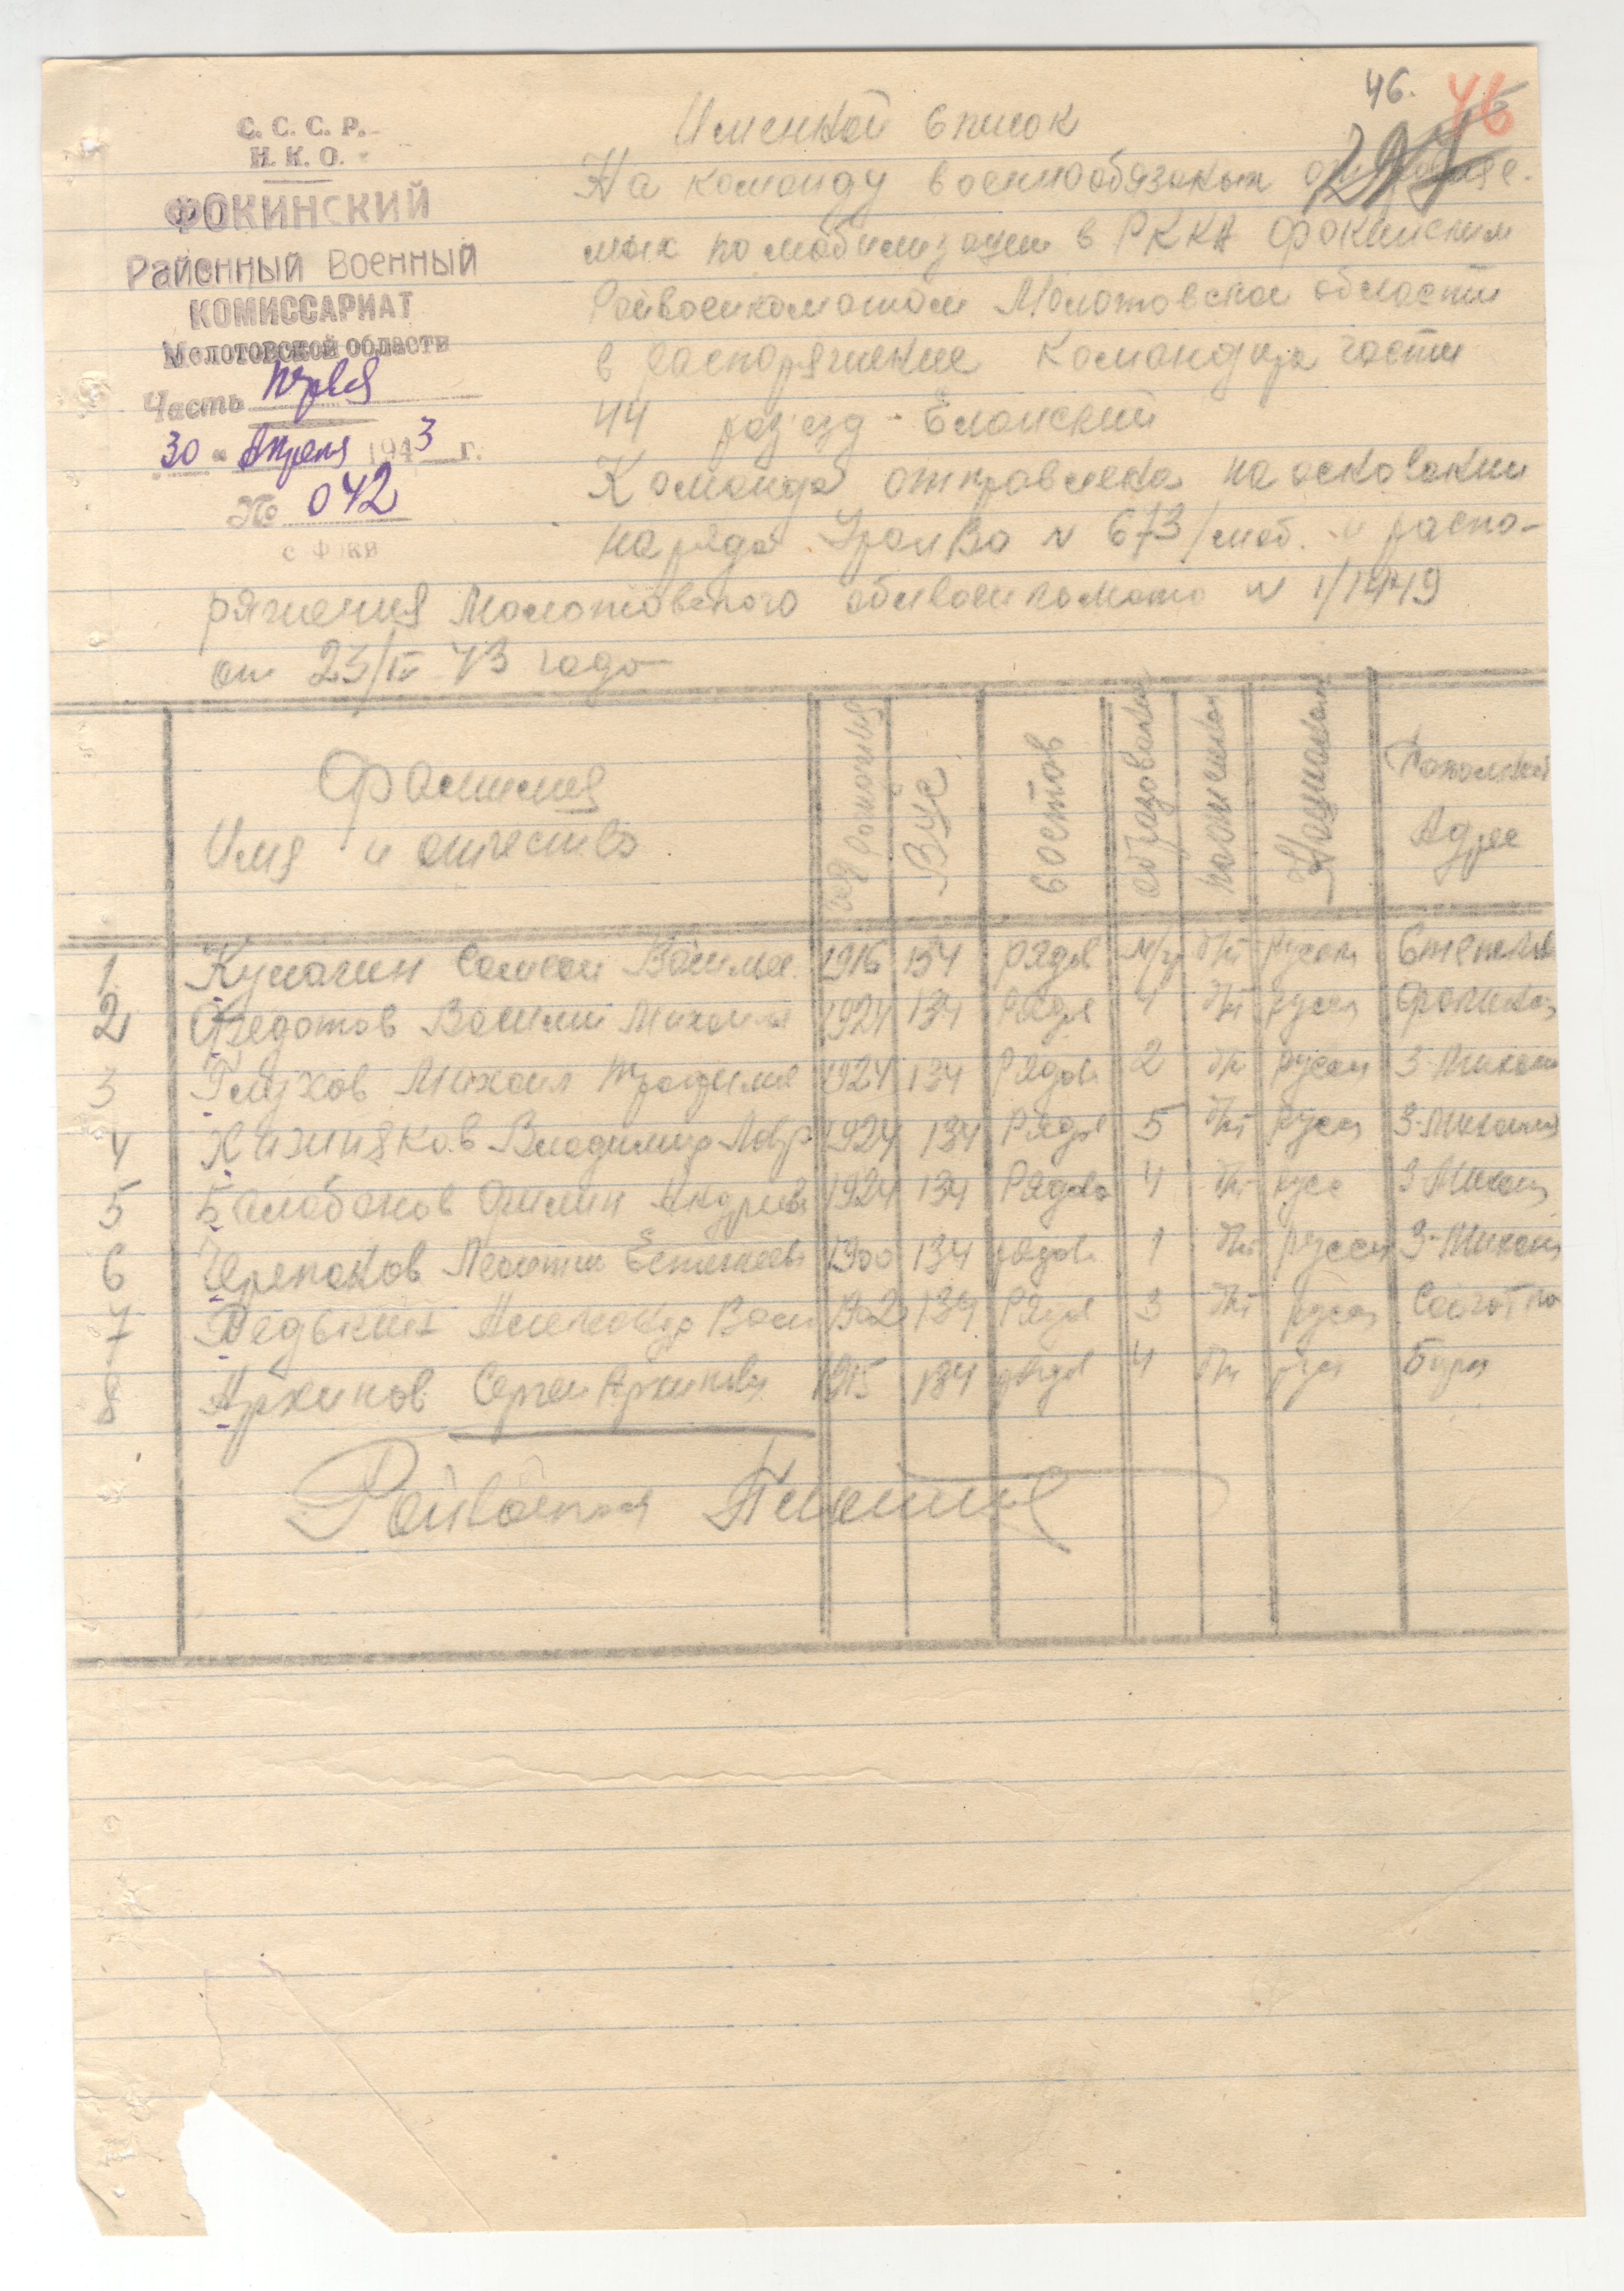 46. 46
С. С. С. Р.
Н. К. О.
ФОКИНСКИЙ
Районный Военный
КОМИССАРИАТ
Молотовской области
Часть первая
30 " Апреля 1943 г.
№ 042
с Фоки
Именной список
На команду военнообязаных отправляе-
мых по мобилизации в РККА Фокинским
Райвоенкоматом Молотовской области
в распоряжение командира части
44 раз'езд - Еланский
Команда отправлена на основании
наряда УралВо № 673/моб. и распо-
ряжения Молотовского облвоенкомата № 1/1449
от 23/IV 43 года
Фамилия Имя и отчество | год рождения | ВУС | состав | образование | Национальн | Домашний Адрес
1 Кулагин Самсон Василье 1916 134 рядов м/гр б/п русск Степано
2 Федотов Василий Михаил 1924 134 Рядов 4 б/п русск Фокинск
3 Глухов Михаил Трофимов 1924 134 Рядов 2 б/п русск З-Михай
4 Владимир Лавр 1924 134 Рядов 5 б/п русск З-Михай
5 Балабанов Филип Андреев 1924 134 Рядово 4 б/п русс З-Михай
6 Черепанов Леонтий 1900 134 рядов 1 б/п русск З-Михай
7 Александр Васи 1902 134 Рядов 3 б/п русск
8 Архипов Сергей Архипович 1915 134 рядов 4 б/п русс
Райвоенком